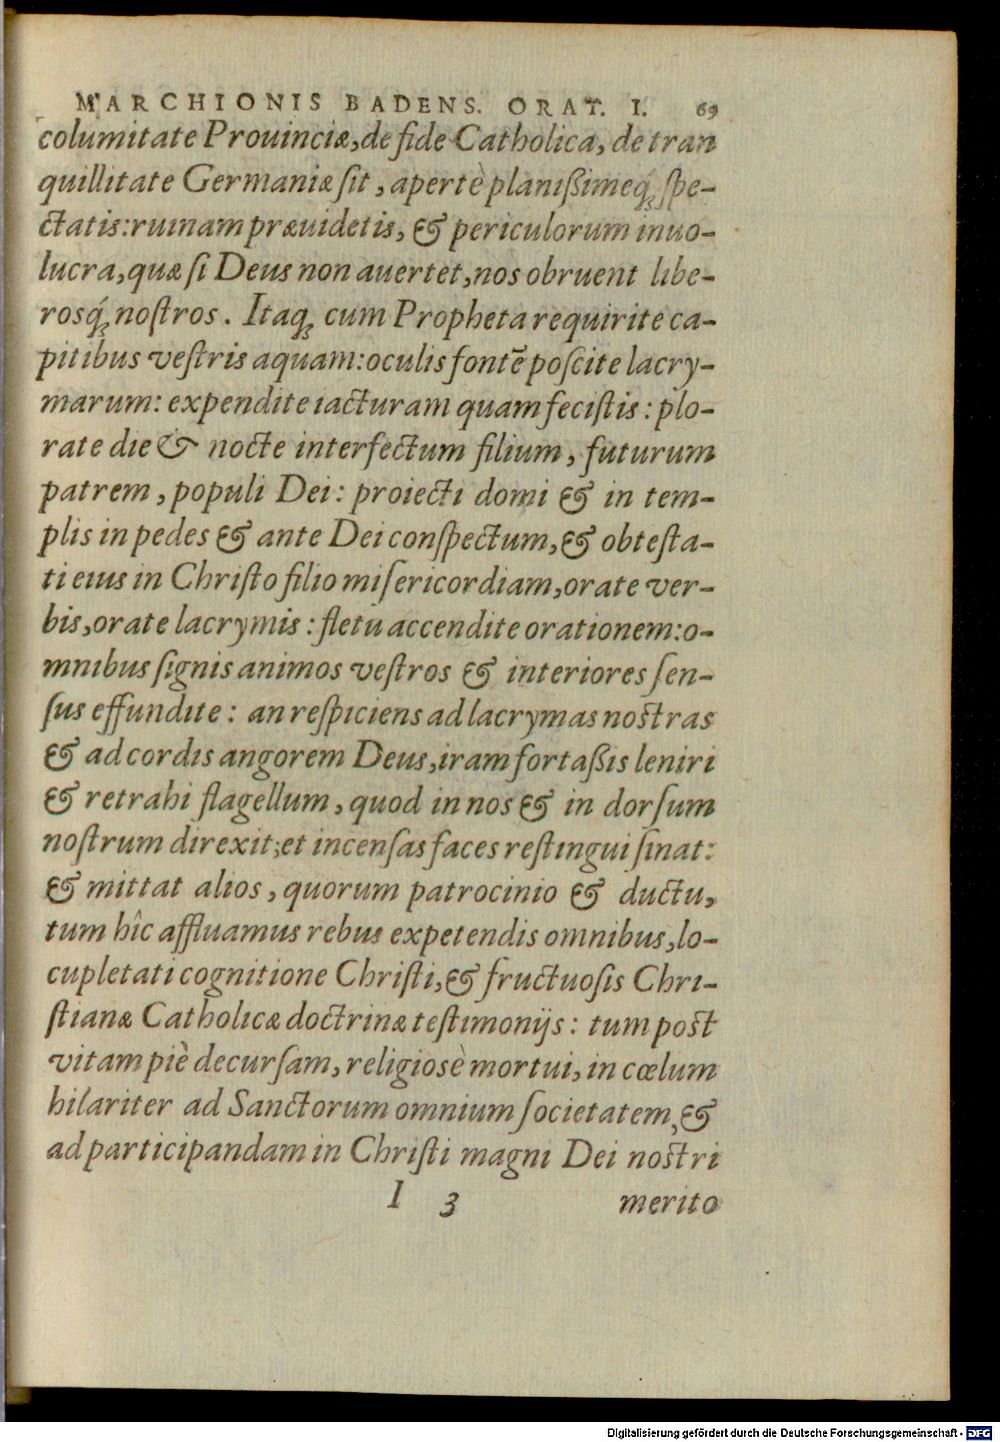 MARCHIONIS BADENS. ORAT. I. 69
columitate Prouinciæ, de fide Catholica, de tran
quillitate Germaniæ ſit, apertè planißimeq́; ſpe-
ctatis: ruinam præuidetis, & periculorum inuo-
lucra, quæ ſi Deus non auertet, nos obruent libe-
rosq́; noſtros. Itaq; cum Propheta requirite ca-
pitibus veſtris aquam: oculis fontē poſcite lacry-
marum: expendite iacturam quam feciſtis: plo-
rate die & nocte interfectum filium, futurum
patrem, populi Dei: proiecti domi & in tem-
plis in pedes & ante Dei conſpectum, & obteſta-
ti eius in Chriſto filio miſericordiam, orate ver-
bis, orate lacrymis: fletu accendite orationem: o-
mnibus ſignis animos veſtros & interiores ſen-
ſus effundite: an reſpiciens ad lacrymas noſtras
& ad cordis angorem Deus, iram fortaßis leniri
& retrahi flagellum, quod in nos & in dorſum
noſtrum direxit; et incenſas faces reſtingui ſinat:
& mittat alios, quorum patrocinio & ductu,
tum hîc affluamus rebus expetendis omnibus, lo-
cupletati cognitione Chriſti, & fructuoſis Chri-
ſtianæ Catholicæ doctrinæ teſtimonijs: tum poſt
vitam piè decurſam, religiosè mortui, in cœlum
hilariter ad Sanctorum omnium ſocietatem, &
ad participandam in Chriſti magni Dei noſtri
I 3 merito
Digitalisierung gefördert durch die Deutsche Forschungsgemeinschaft - DFG